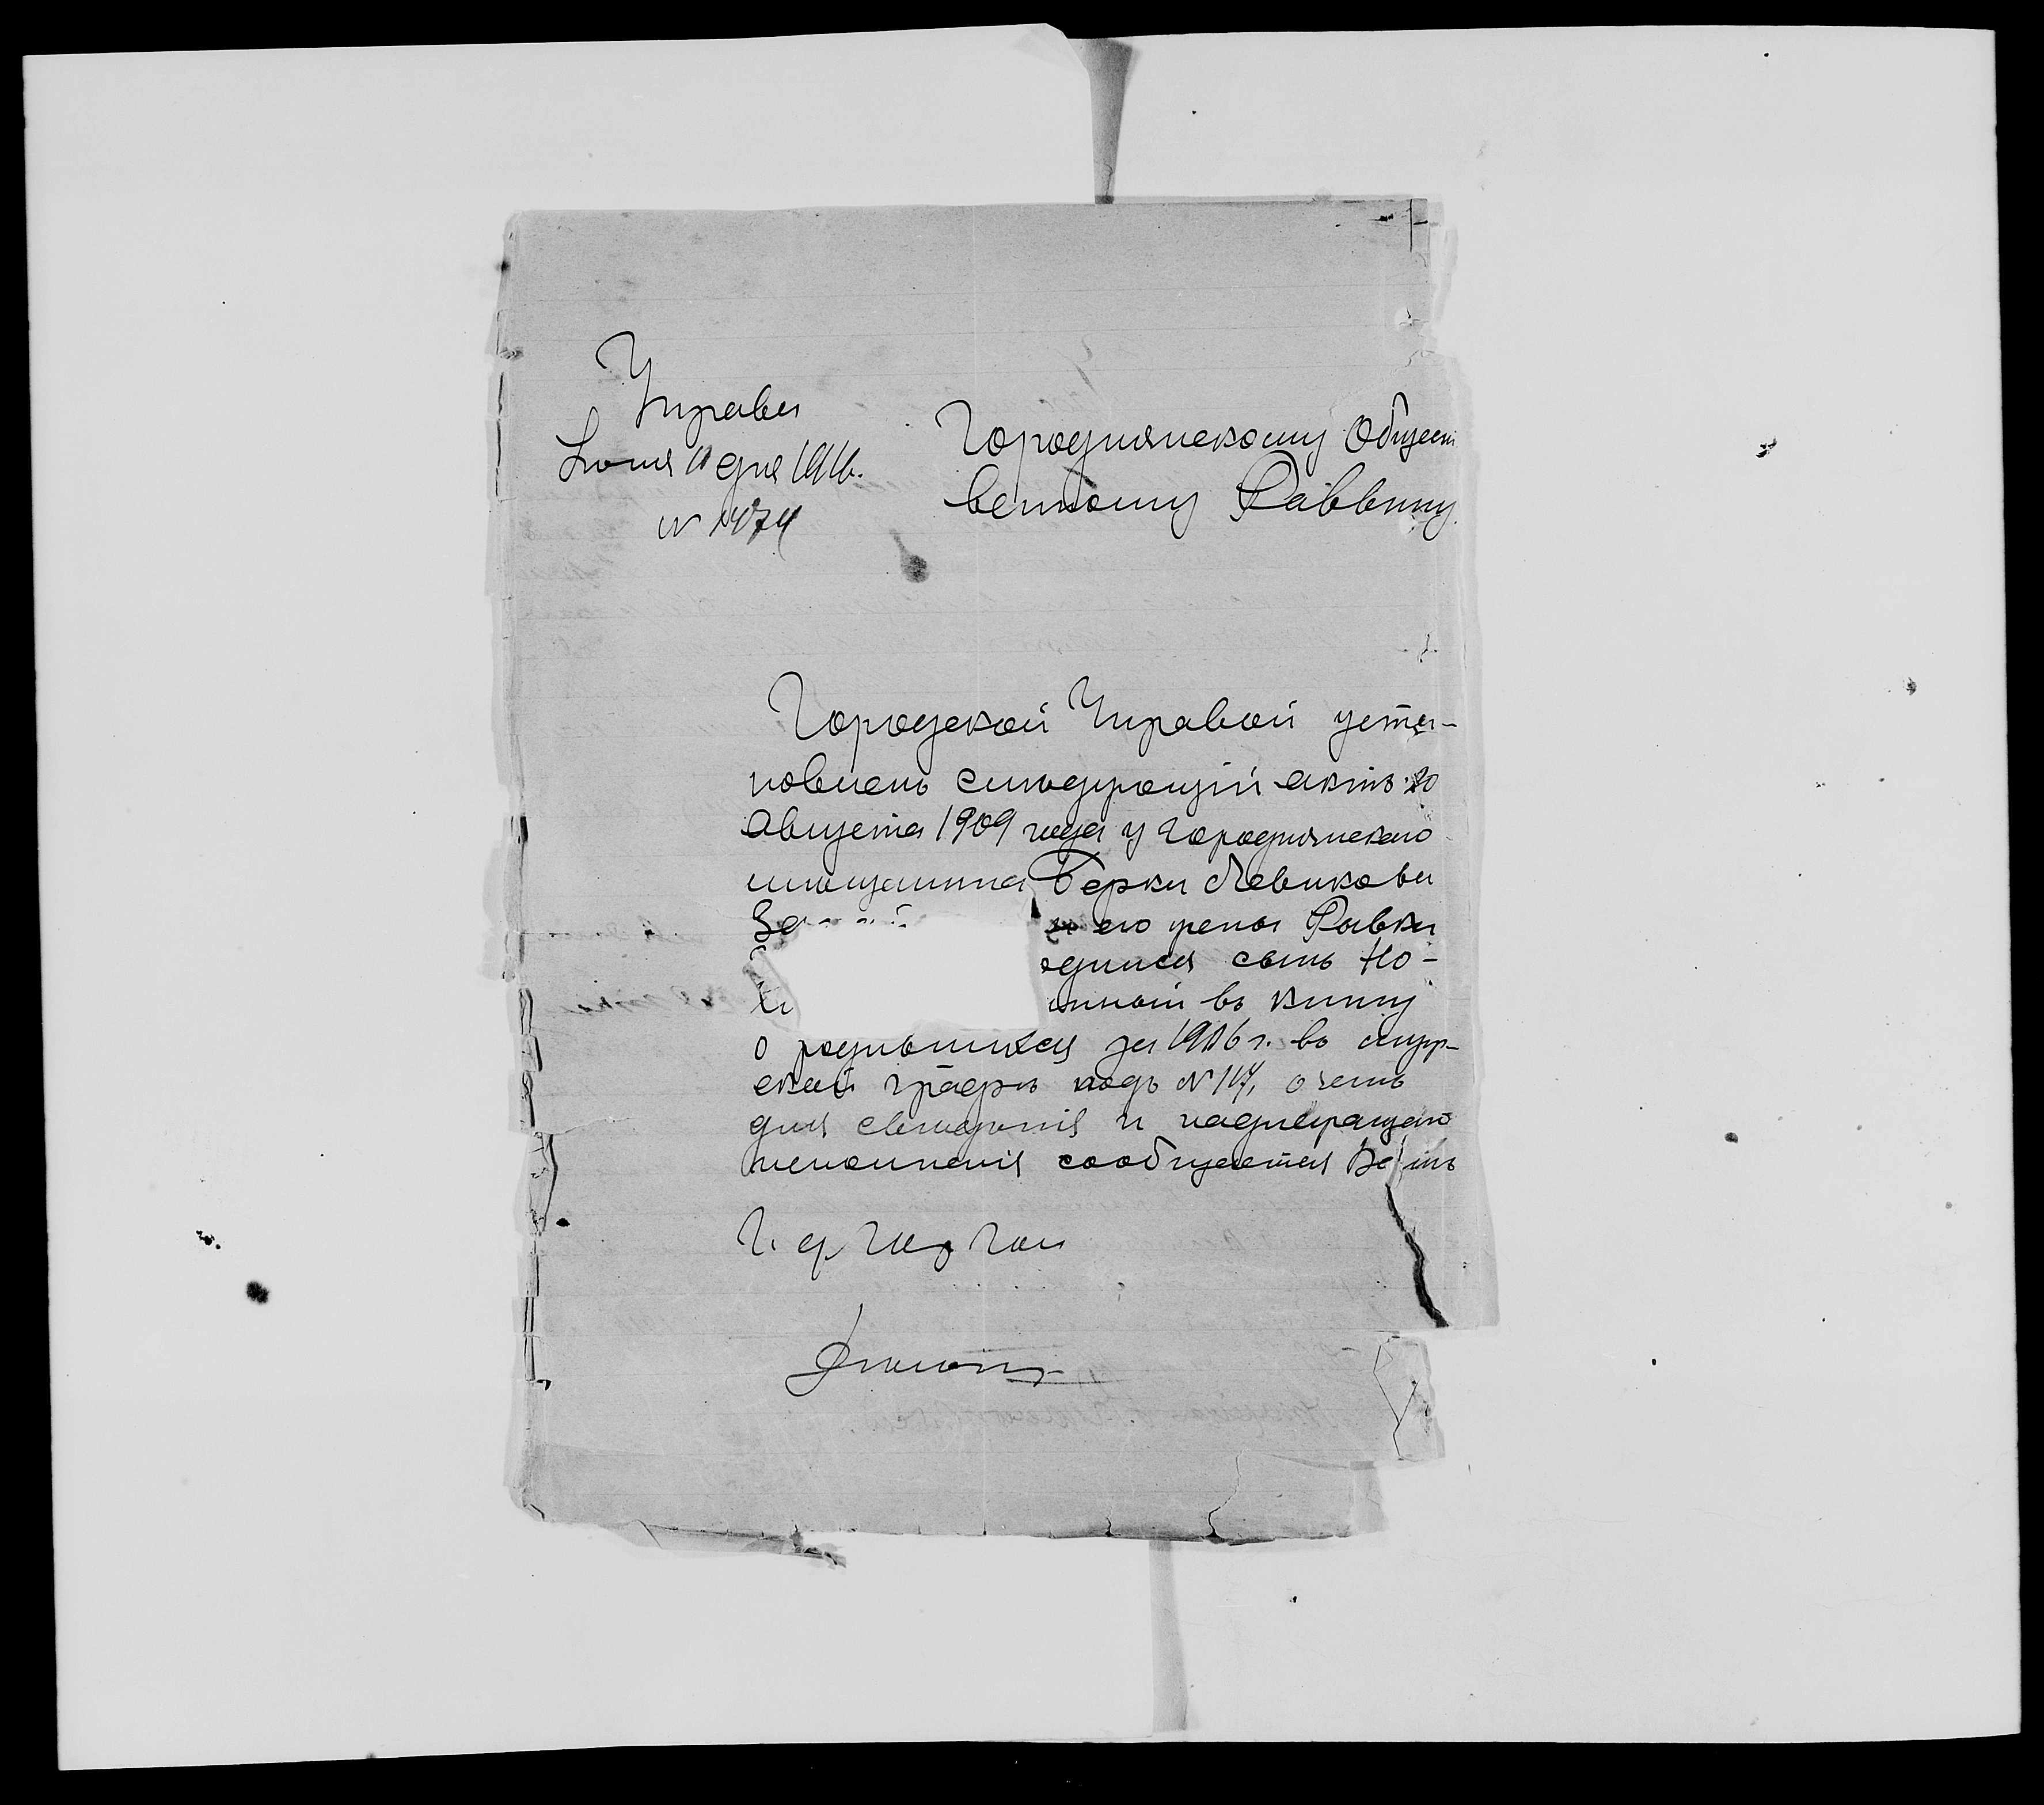 Управа
Iюня 11 дня 1916.
N 1974
Городнянскому Общест
венному Раввину.
Городской Управой уста-
новленъ слѣдующiй актъ: 20
Августа 1909 года у городнянскаго
мѣщанина Берки Левикова
За и его жены Ривки
одился сынъ Но-
анный въ книгу
о родившихся за 1916 г. въ муж-
ской графѣ подъ N 117, о чемъ
для свѣдѣнiя и надлежащаго
исполненiя сообщается Вамъ